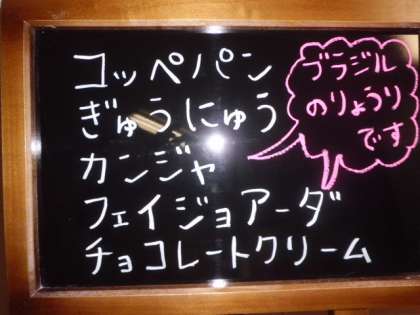 コッペパン
ぎゅうにゅう
カンジャ
フェイジョアーダ
チョコレートクリーム
ブラジル
のりょうり
です